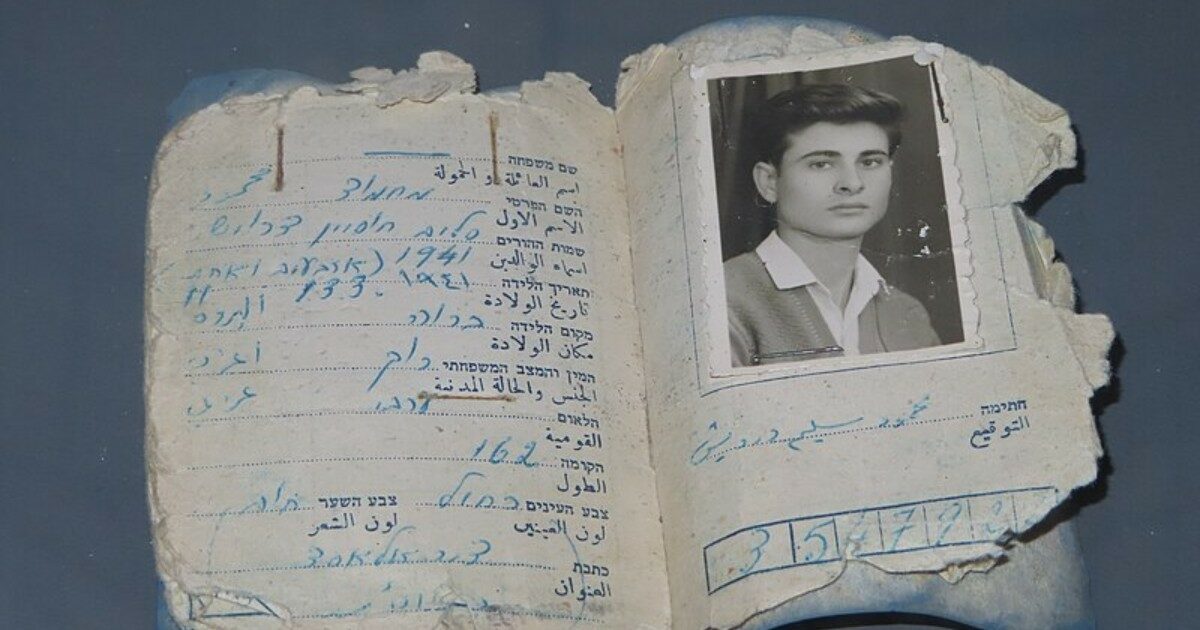 שם משפחה
اسم العائلة والحمولة
השם הפרטי מחמוד محمود
الاسم الاول
שמות ההורים סלים חוסיין דרויש
اسماء الوالدين
תאריך הלידה 1941 (ארבעים ואחת
تاريخ الولادة ١٩٤١
מקום הלידה ברווה البروة
مكان الولادة
המין והמצב המשפחתי רווק
الجنس والحالة المدنية
הלאום ערבי عربي
القومية
הקומה 162
الطول
צבע העינים כחול צבע השער חום
لون العينين لون الشعر
כתבת
العنوان
חתימה محمود سليم درويش
التوقيع
3 5 4 7 9 2